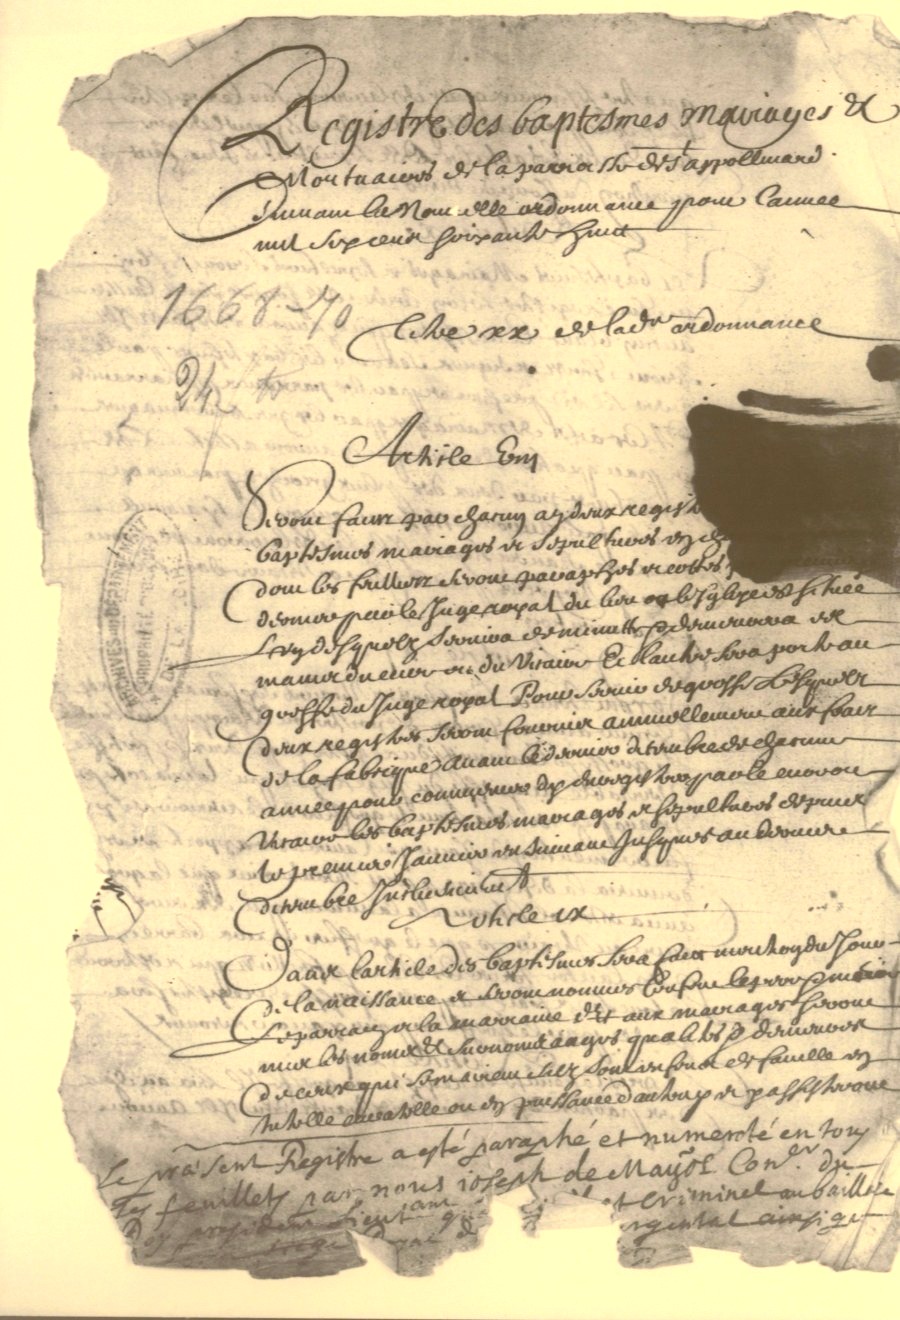 Registre des baptesmes mariages et
Mortuaires de la parroisse de St appollinard
suivant la Nouvelle ordonnance pour l'annee
mil six cens soixante huit
1668-70
Tiltre xx de lade ordonnance
24
Article
Seront faits par chacun an deux regist
baptesmes mariages et sepultures en
dont les feuillets seront paraphes et cottes
dernier par le Juge royal du lieu ou l'Eglise est située
L'un desquels servira de minutte & demeurera es
mains du curé ou du Vicaire Et l'autre sera porté au
greffe du Juge royal Pour servir de grosse Lesquels
deux registres seront fournis annuellement aux frais
de la fabrique avant le dernier decembre de chacune
année pour commencer d'y enregistrer par le curé ou
Vicaire les baptesmes mariages et sepultures depuis
le premier Janvier en suivant Jusques au dernier
decembre Inclusivement
Article ix
Dans l'article des baptesmes sera fait mention du Jour
de la naissance et seront nommes l'enfant le pere & mere
Le parrain et la marraine Et aux mariages seront
mis les noms et surnoms aages qualités & demeures
de ceux qui se marient s'ils sont enfans de famille en
tutelle curatelle ou en puissance d'autruy et y assisteront
Le present Registre a esté paraphé et numeroté en tous
ses feuillets par nous ioseph de Mayol Coner du
Roy president Lieutant et Criminel au bailliage
argental ainsi que
ARCHIVES DU DÉPARTEMENT
DE LA LOIRE